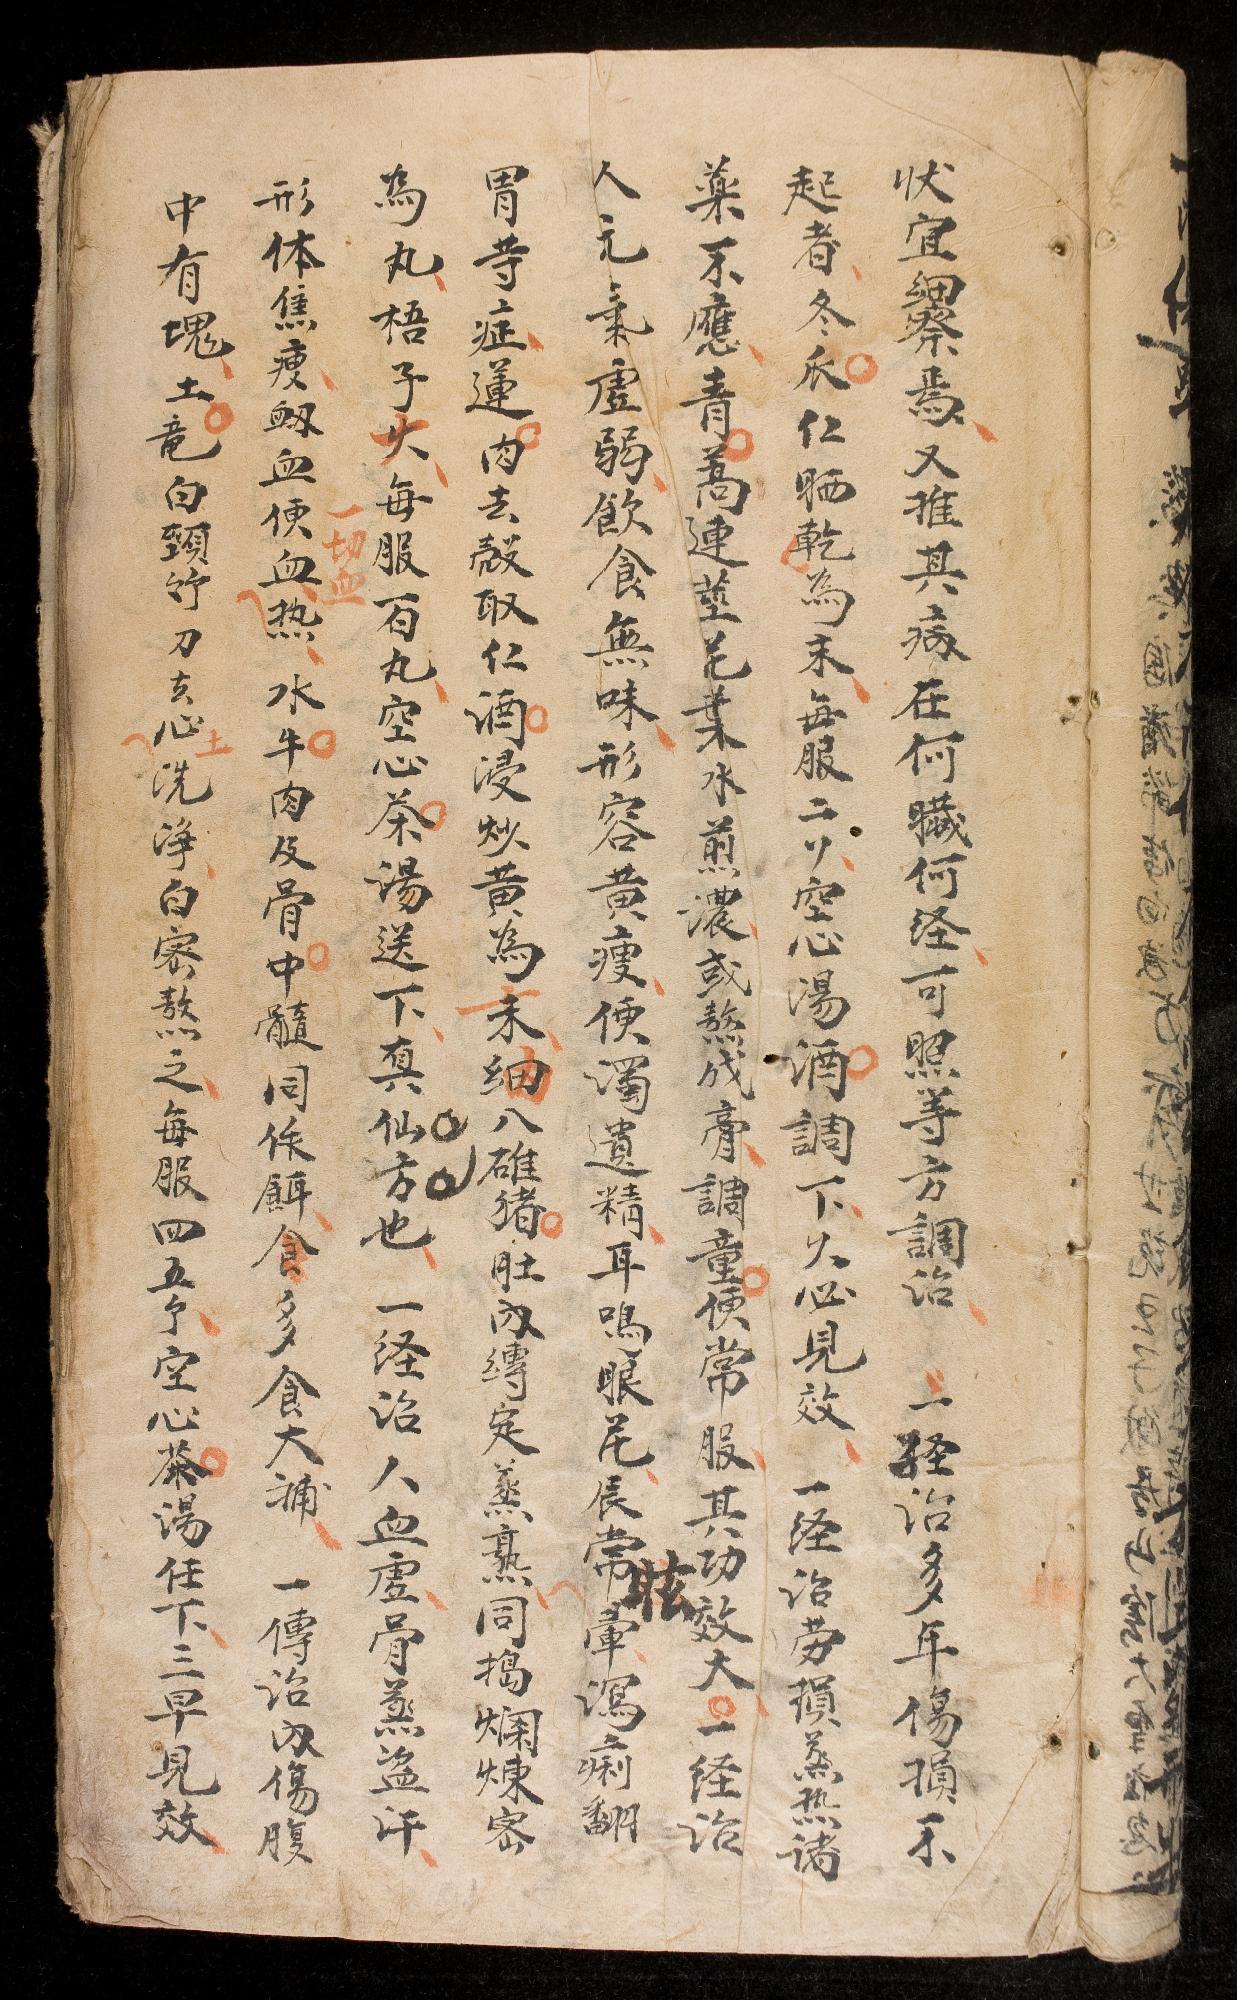 状宜細察焉又推其病在何臟何経可照等方調治 一経治多年傷損不
起者冬瓜仁晒乾為末每服二刂空心湯酒調下久必見效 一経治劳損蒸热诸
薬不應青蒿連莖花葉水煎濃或熬成膏調童便常服其功效大 一経治
人元氣虚弱飲食無味形容黄瘦便濁遺精耳鳴眼花辰常暈瀉痢翻
眩
胃等症蓮肉去殼取仁酒浸炒黄為末細八碓猪肚內縛定蒸熟同搗爛煉密
為丸梧子大每服百丸空心茶湯送下真仙方也 一経治人血虚骨蒸盗汗
一切血
形体焦瘦衂血便血热水牛肉及骨中髓同作餌食多食大補 一傳治內傷腹
中有塊土竜白頸竹刀去心洗净白密熬之每服四五亇空心茶湯任下三早見效
土